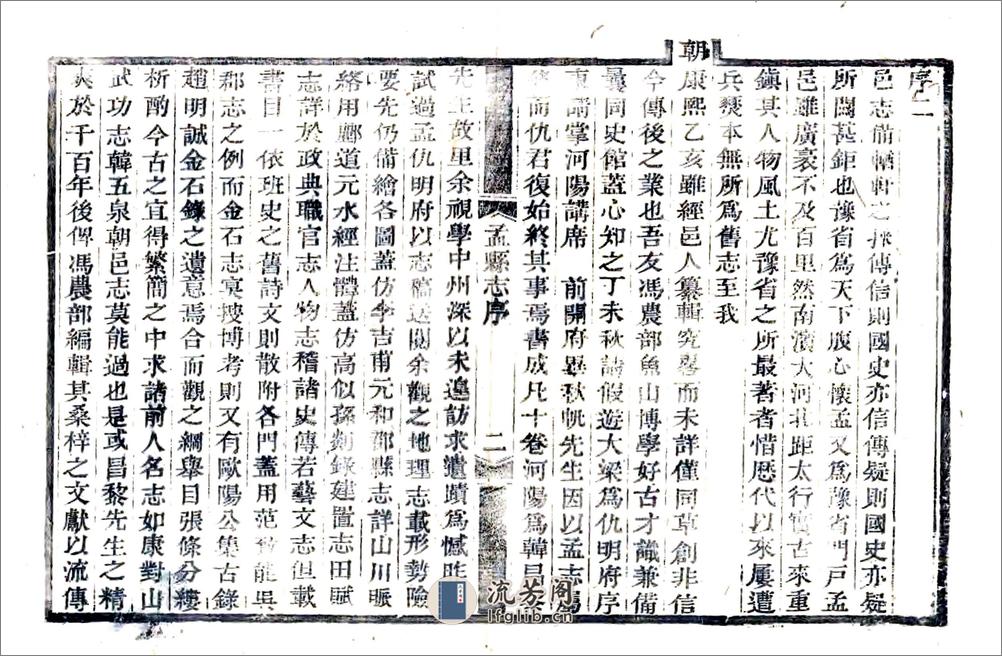 序二
邑志前輶軒之採傳信則國史亦信傳疑則國史亦疑
所關甚鉅也豫省爲天下腹心懷孟又爲豫省門戶孟
邑雖廣袤不及百里然南濱大河北距太行實古來重
鎮其人物風土尤豫省之所最著者惜歷代以來屢遭
兵燹本無所爲舊志至我
朝
康熙乙亥雖經邑人纂輯究畧而未詳僅同草創非信
今傳後之業也吾友馮農部魚山博學好古才識兼備
曩同史館蓋心知之丁未秋請假遊大梁爲仇明府序
東請掌河陽講席 前開府畢秋帆先生因以孟志屬
修而仇君復始終其事焉書成凡十卷河陽爲韓昌
孟縣志序
二
先生故里余視學中州深以未遑訪求遺蹟爲憾昨
試過孟仇明府以志稿送閱余觀之地理志載形勢險
要先仍備繪各圖蓋仿李吉甫元和郡縣志詳山川脈
絡用酈道元水經注體蓋仿高似孫剡錄建置志田賦
志詳於政典職官志人物志稽諸史傳若藝文志但載
書目一依班史之舊詩文則散附各門蓋用范致能吳
郡志之例而金石志冥搜博考則又有歐陽公集古錄
趙明誠金石錄之遺意焉合而觀之綱舉目張條分縷
析酌今古之宜得繁簡之中求諸前人名志如康對山
武功志韓五泉朝邑志莫能過也是或昌黎先生之精
爽於千百年後俾馮農部編輯其桑梓之文獻以流傳
流芳阁
lfglib.cn